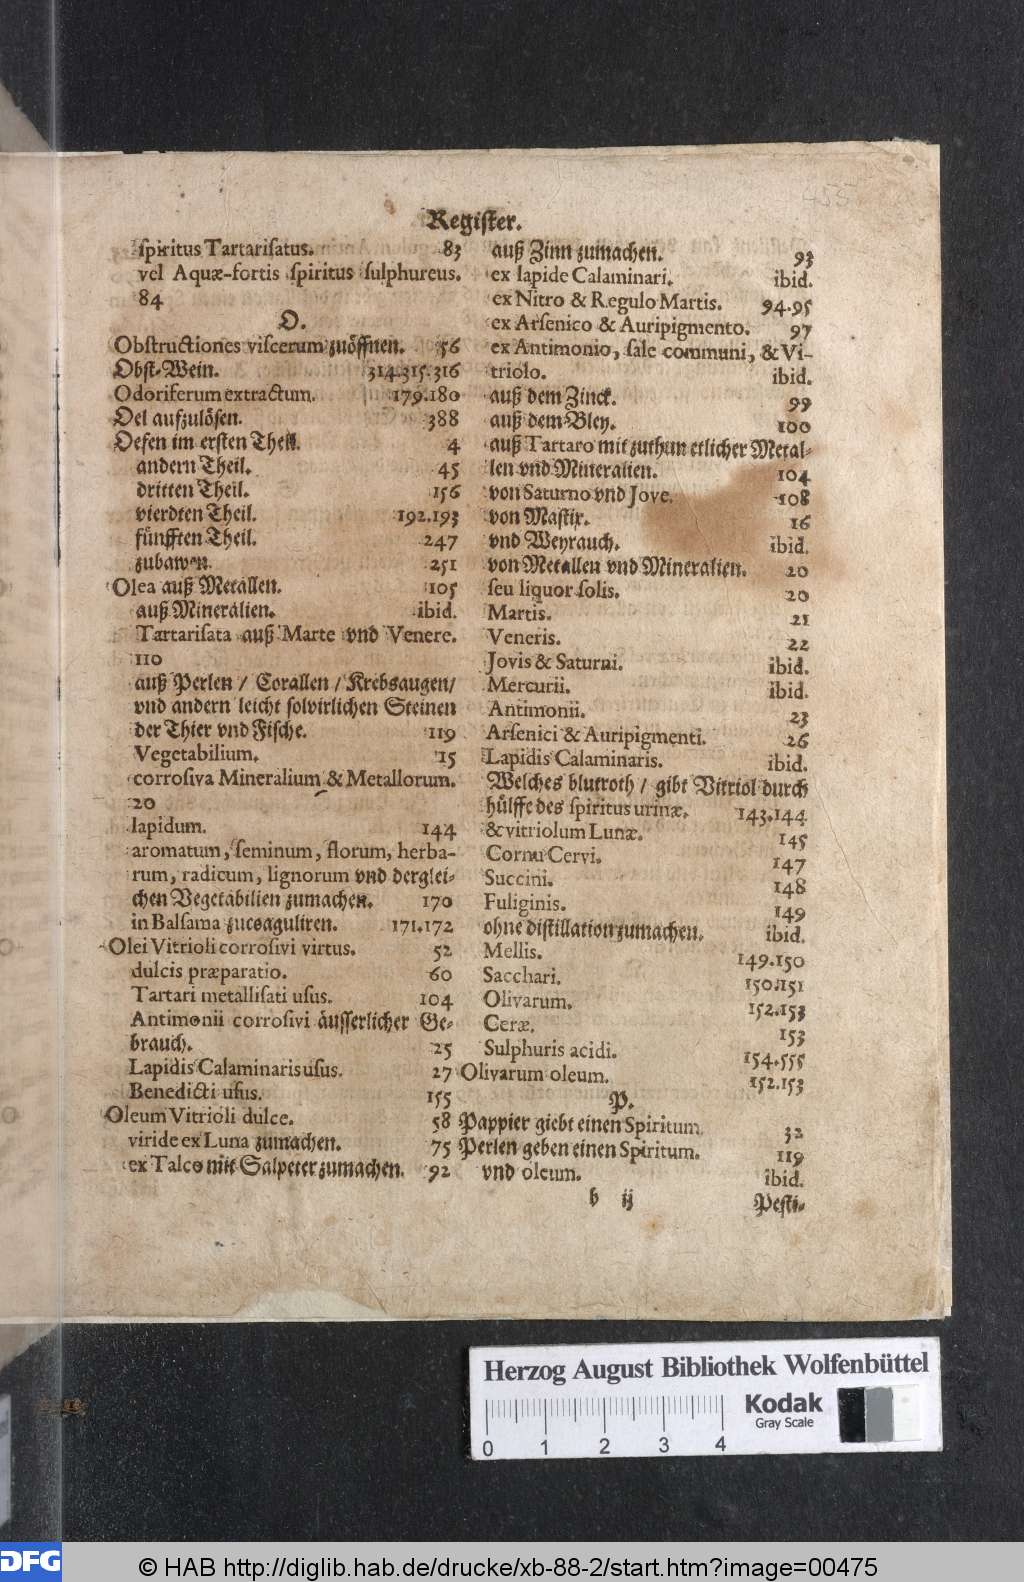 Register.
spiritus Tartarisatus. 83
vel Aquæ-fortis spiritus sulphureus.
84
O.
Obstructiones viscerum zuöffnen. 56
Obst-Wein. 314.315.316
Odoriferum extractum. 179.180
Oel aufzulösen. 388
Oefen im ersten Theil. 4
andern Theil. 45
dritten Theil. 156
vierdten Theil. 192.193
fünfften Theil. 247
zubawen. 251
Olea auß Metallen. 105
auß Mineralien. ibid.
Tartarisata auß Marte vnd Venere.
110
auß Perlen / Corallen / Krebsaugen /
vnd andern leicht solvirlichen Steinen
der Thier vnd Fische. 119
Vegetabilium. 15
corrosiva Mineralium & Metallorum.
20
lapidum. 144
aromatum, seminum, florum, herba-
rum, radicum, lignorum vnd derglei-
chen Vegetabilien zumachen. 170
in Balsama zucoaguliren. 171.172
Olei Vitrioli corrosivi virtus. 52
dulcis præparatio. 60
Tartari metallisati usus. 104
Antimonii corrosivi äusserlicher Ge-
brauch. 25
Lapidis Calaminaris usus. 27
Benedicti usus. 155
Oleum Vitrioli dulce. 58
viride ex Luna zumachen. 75
ex Talco mit Salpeter zumachen. 92
auß Zinn zumachen. 93
ex lapide Calaminari. ibid.
ex Nitro & Regulo Martis. 94.95
ex Arsenico & Auripigmento. 97
ex Antimonio, sale communi, & Vi-
triolo. ibid.
auß dem Zinck. 99
auß dem Bley. 100
auß Tartaro mit zuthun etlicher Metal-
len vnd Mineralien. 104
von Saturno vnd Jove. 108
von Mastix. 16
vnd Weyrauch. ibid.
von Metallen vnd Mineralien. 20
seu liquor solis. 20
Martis. 21
Veneris. 22
Jovis & Saturni. ibid.
Mercurii. ibid.
Antimonii. 23
Arsenici & Auripigmenti. 26
Lapidis Calaminaris. ibid.
Welches blutroth / gibt Vitriol durch
hülffe des spiritus urinæ. 143.144
& vitriolum Lunæ. 145
Cornu Cervi. 147
Succini. 148
Fuliginis. 149
ohne distillation zumachen. ibid.
Mellis. 149.150
Sacchari. 150.151
Olivarum. 152.153
Ceræ. 153
Sulphuris acidi. 154.555
Olivarum oleum. 152.153
P.
Pappier giebt einen Spiritum 32
Perlen geben einen Spiritum. 119
vnd oleum. ibid.
b ij Pesti-
Herzog August Bibliothek Wolfenbüttel
Kodak
Gray Scale
0 1 2 3 4
DFG
© HAB http://diglib.hab.de/drucke/xb-88-2/start.htm?image=00475